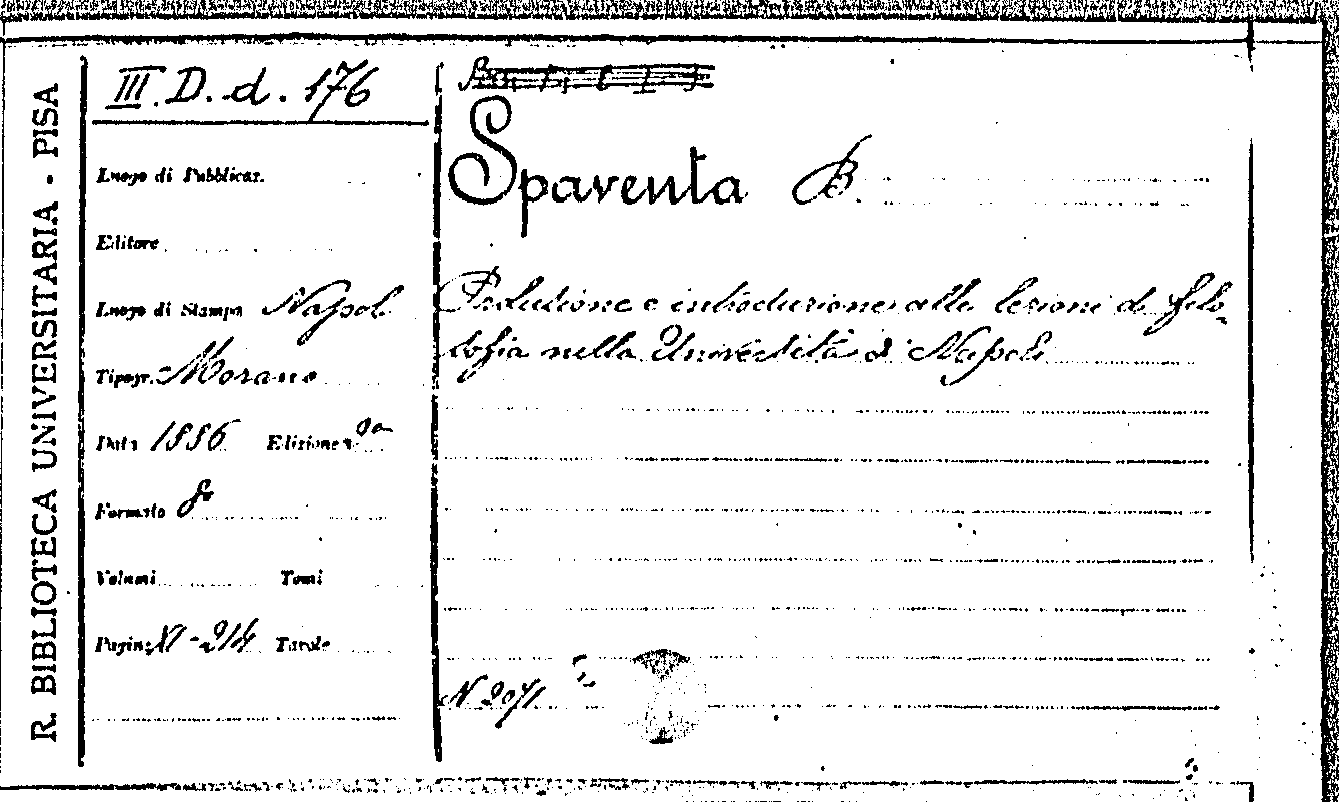 R. BIBLIOTECA UNIVERSITARIA - PISA
III. D. d. 176
Luogo di Pubblicaz.
Editore
Luogo di Stampa Napoli
Tipogr. Morano
Data 1886 Edizione 2a
Formato 8o
Volumi Tomi
Pagine XI-214 Tavole
Spaventa B.
Prolusione e introduzione alle lezioni di filo-
sofia nella Università di Napoli
N 2071